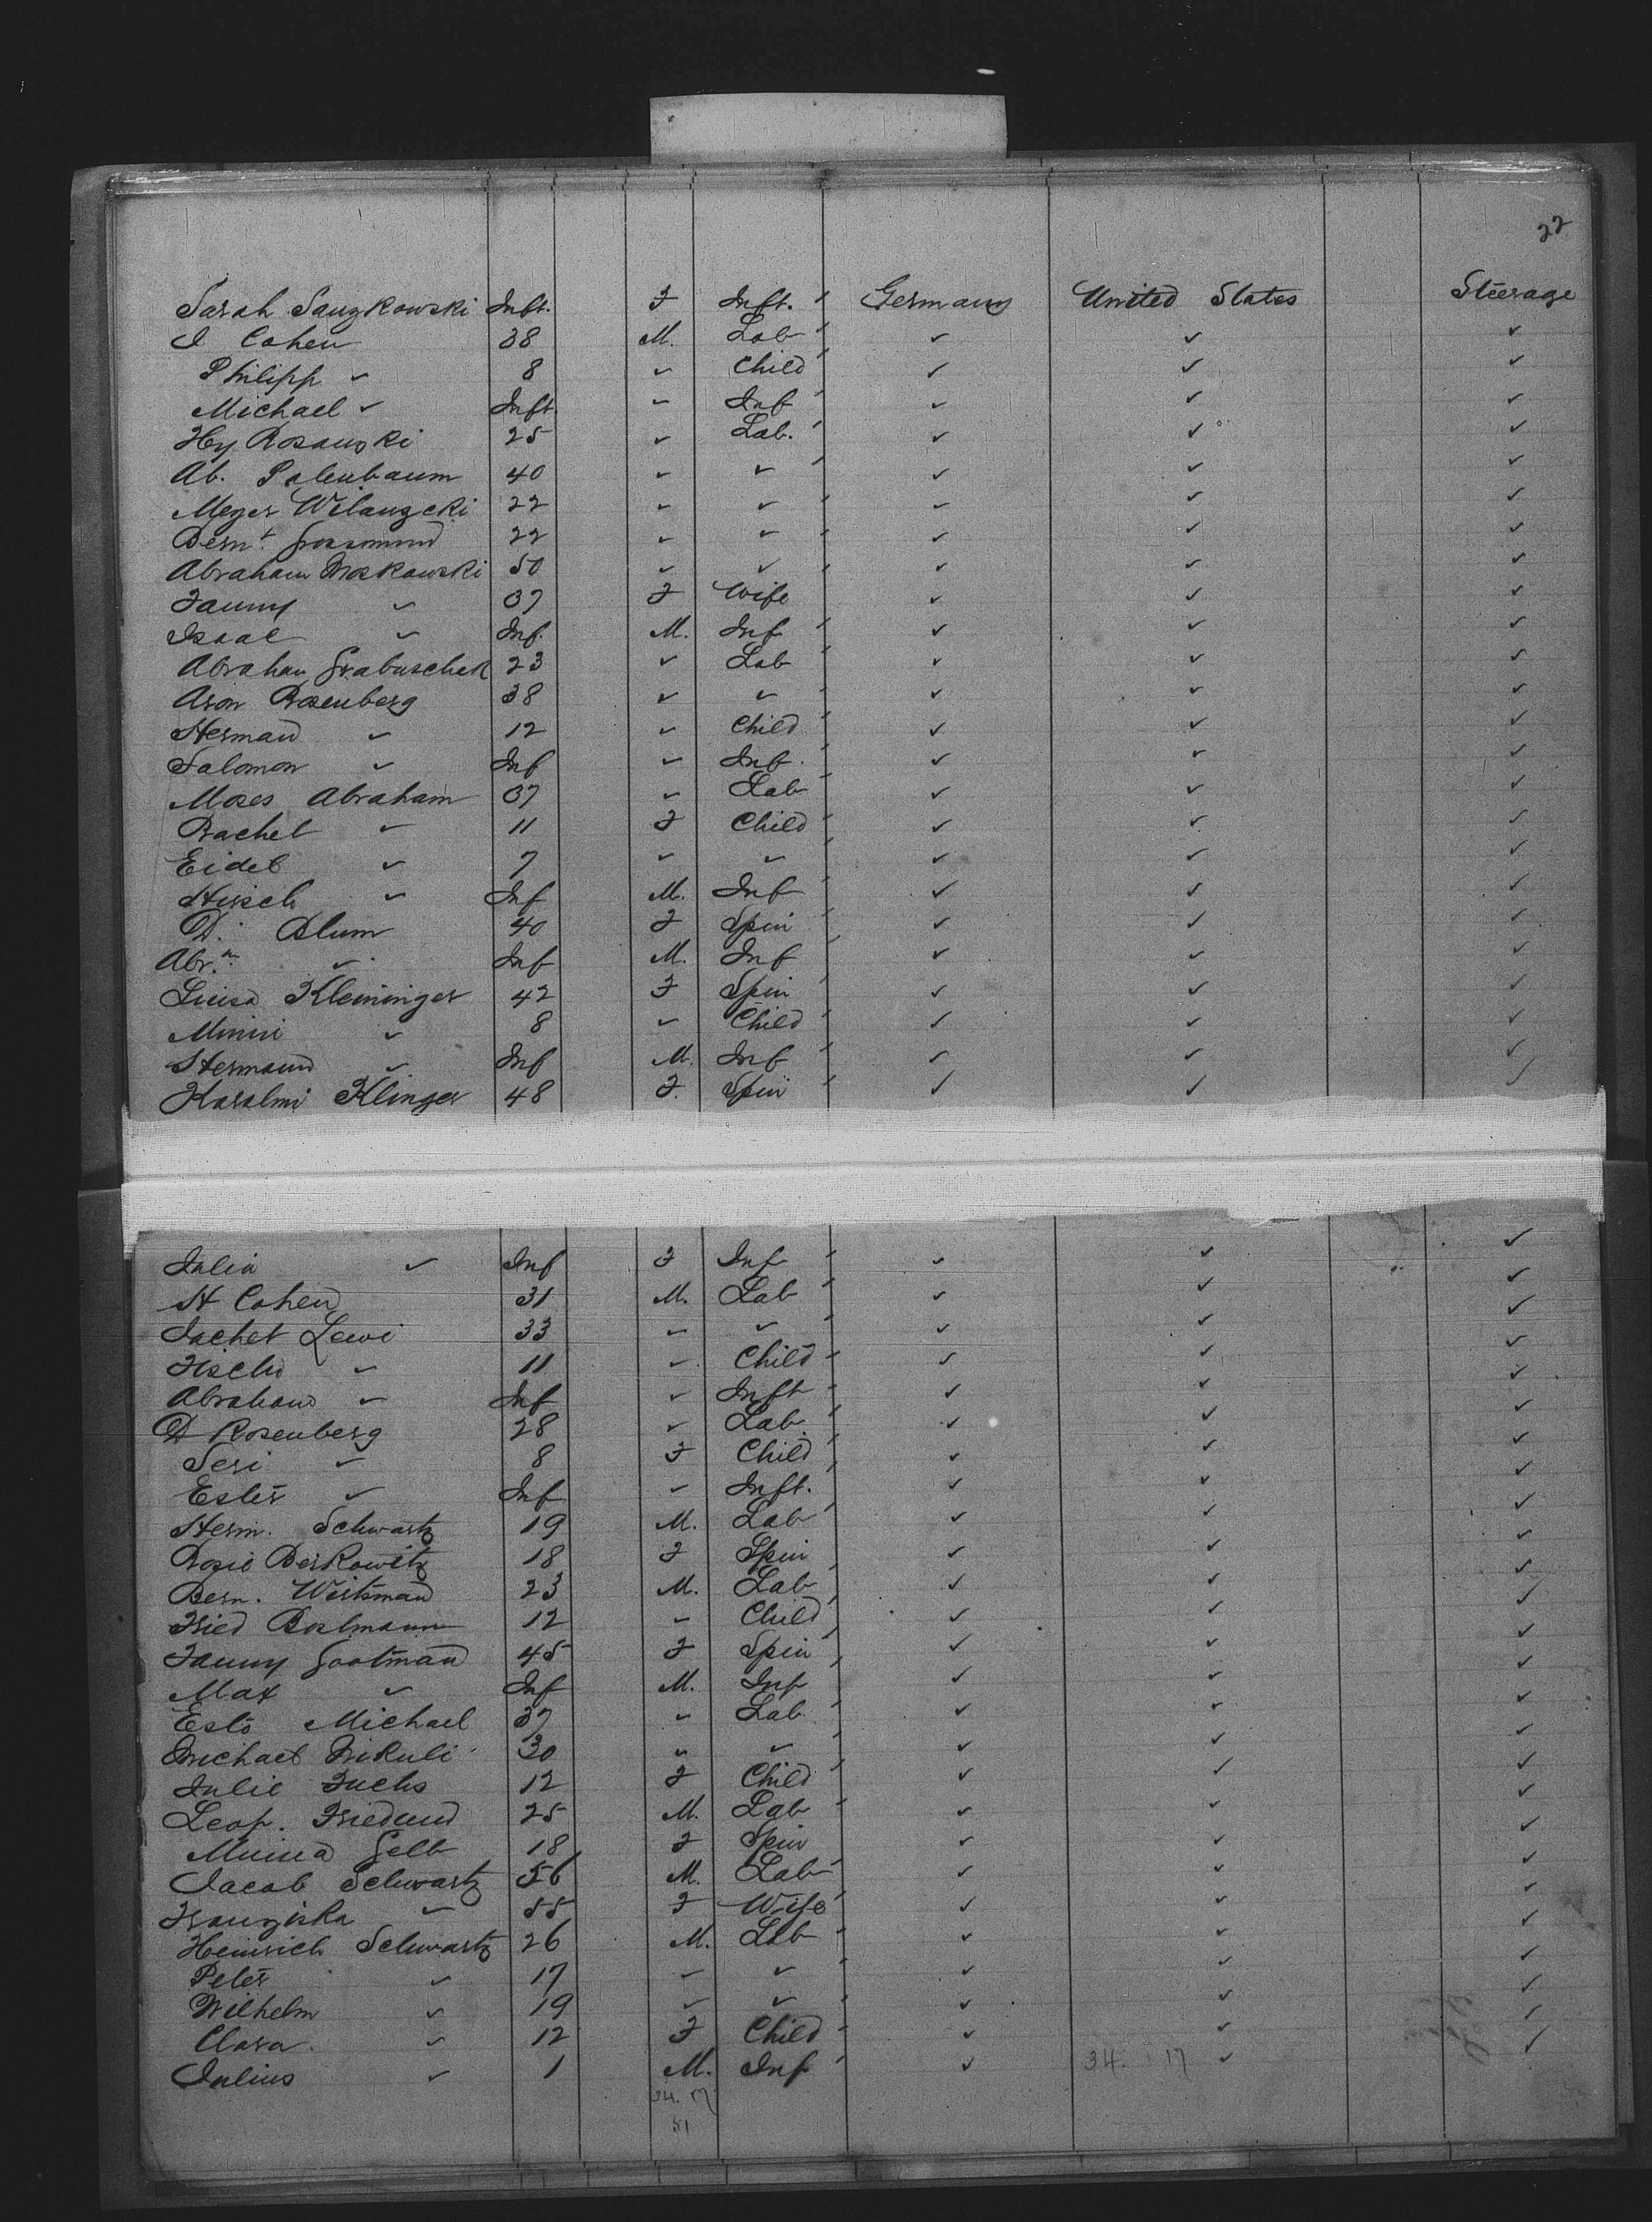 22
Sarah Sangkowski Inft. F Inft. Germany United States Steerage
I Cohen 38 M. Lab ✓ ✓ ✓
Philipp ✓ 8 ✓ Child ✓ ✓ ✓
Michael ✓ Inft. ✓ Inf ✓ ✓ ✓
Hy Rosanski 25 ✓ Lab. ✓ ✓ ✓
Ab. Palenbaum 40 ✓ ✓ ✓ ✓ ✓
Meyer Wilangcki 22 ✓ ✓ ✓ ✓ ✓
Bernt. 22 ✓ ✓ ✓ ✓ ✓
Abraham Moskowski 50 ✓ ✓ ✓ ✓ ✓
Fanny ✓ 37 F Wife ✓ ✓ ✓
Isaac ✓ Inf. M. Inf ✓ ✓ ✓
Abraham Grabuschek 23 ✓ Lab ✓ ✓ ✓
Aron Rosenberg 38 ✓ ✓ ✓ ✓ ✓
Herman ✓ 12 ✓ Child ✓ ✓ ✓
Salomon ✓ Inf ✓ Inf. ✓ ✓ ✓
Moses Abraham 37 ✓ Lab ✓ ✓ ✓
Rachel ✓ 11 F Child ✓ ✓ ✓
Eidel ✓ 7 ✓ ✓ ✓ ✓ ✓
Hirsch ✓ Inf M. Inf ✓ ✓ ✓
D. Blum 40 F Spin ✓ ✓ ✓
Abrm. ✓ Inf M. Inf ✓ ✓ ✓
Luisa Kleininger 42 F Spin ✓ ✓ ✓
Mini ✓ 8 ✓ Child ✓ ✓ ✓
Hermann ✓ Inf M. Inf ✓ ✓ ✓
Karolmi Klinger 48 F. Spin ✓ ✓ ✓
Julia ✓ Inf F Inf ✓ ✓ ✓
H Cohen 31 M. Lab ✓ ✓ ✓
Jachet Lewi 33 ✓ ✓ ✓ ✓ ✓
Fischu ✓ 11 ✓ Child ✓ ✓ ✓
Abraham ✓ Inf ✓ Inft ✓ ✓ ✓
D Rosenberg 28 ✓ Lab ✓ ✓ ✓
Seri ✓ 8 F Child ✓ ✓ ✓
Ester ✓ Inf ✓ Inft. ✓ ✓ ✓
Herm. Schwartz 19 M. Lab ✓ ✓ ✓
Rosie Berkowitz 18 F Spin ✓ ✓ ✓
Bern. Weitsman 23 M. Lab ✓ ✓ ✓
Fried Boslmann 12 ✓ Child ✓ ✓ ✓
Fanny Gootman 45 F Spin ✓ ✓ ✓
Max ✓ Inf M. Inf ✓ ✓ ✓
Esto Michael 37 ✓ Lab ✓ ✓ ✓
Michael Mikuli 30 ✓ ✓ ✓ ✓ ✓
Julie Fuchs 12 F Child ✓ ✓ ✓
Leop. Friedund 25 M. Lab ✓ ✓ ✓
Minna Gelb 18 F Spin ✓ ✓ ✓
Jacob Schwartz 56 M. Lab ✓ ✓ ✓
Franziska ✓ 55 F Wife ✓ ✓ ✓
Heinrich Schwartz 26 M. Lab ✓ ✓ ✓
Peter ✓ 17 ✓ ✓ ✓ ✓ ✓
Wilhelm ✓ 19 ✓ ✓ ✓ ✓ ✓
Clara ✓ 12 F Child ✓ ✓ ✓
Julius ✓ 1 M. Inf ✓ 34. 17 ✓ ✓
34. 17
51